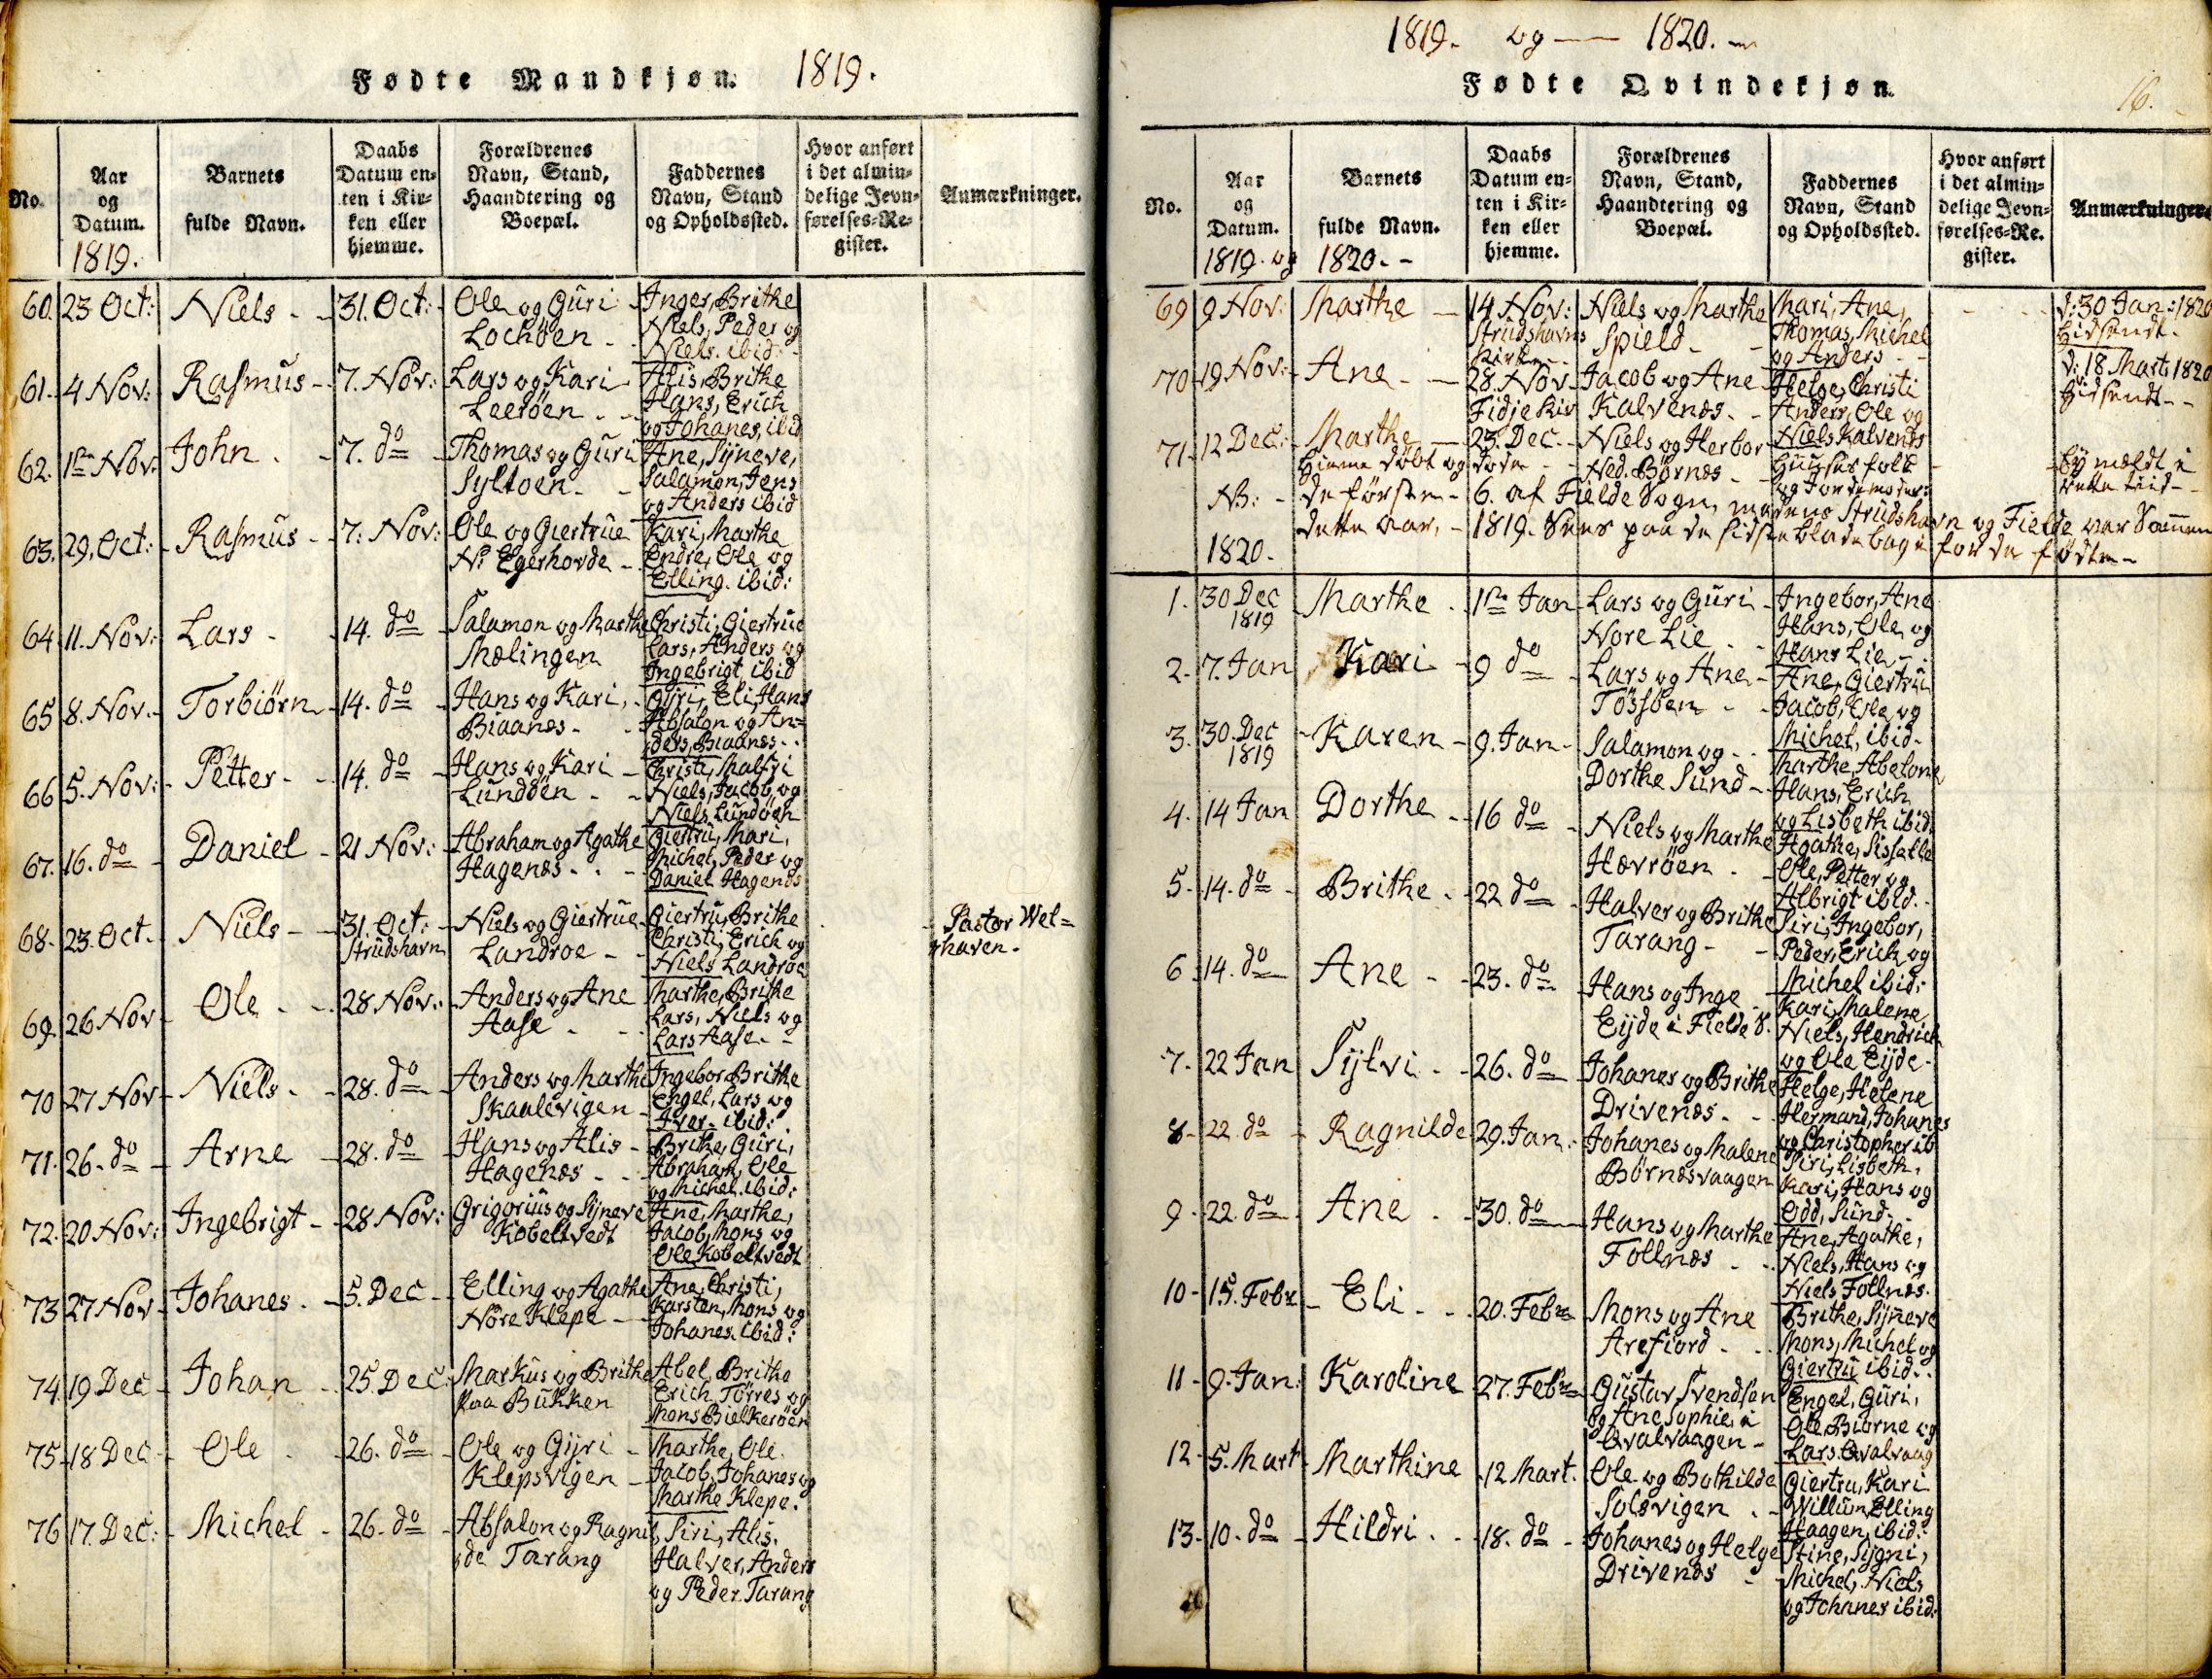 Fødte Mandkjøn. 1819.
No.
Aar og Datum. 1819.
Barnets fulde Navn.
Daabs Datum enten i Kirken eller hjemme.
Forældrenes Navn, Stand, Haandtering og Boepæl.
Faddernes Navn, Stand og Opholdssted.
Hvor anført i det almindelige Jevnførelses-Register.
Anmærkninger.
60. 23 Oct: Niels - 31. Oct: Ole og Guri Inger, Brithe
Lochøen - Niels, Peder og
Niels. ibid:
61. 4 Nov: Rasmus - 7. Nov: Lars og Kari Alis, Brithe
Leerøen - Hans, Erich
og Johanes, ibid
62. 1ste Nov: John. - 7. do Thomas og Guri Ane, Syneve,
Syltøen - Salamon, Jens
og Anders ibid
63. 29. Oct: Rasmus - 7. Nov: Ole og Giertrue Kari, Marthe
N: Egerhovde - Endre, Ole og
Elling. ibid:
64 11. Nov: Lars - 14. do Salamon og Marthe Christi, Giertrue
Mælingen Lars, Anders og
Ingebrigt ibid
65 8. Nov. Torbiørn 14. do Hans og Kari, Gyri, Eli, Hans
Biaanes - Absalon og An=
ders, Biaanes
66 5. Nov: Petter - 14. do Hans og Kari Christi, Malfri
Lundøen - Niels, Jacob, og
Niels Lundøen
67. 16. do Daniel - 21 Nov: Abraham og Agathe Giertru, Mari,
Hagenes - Michel, Peder og
Daniel Hagenes
68. 23. Oct. Niels - 31. Oct: Niels og Giertrue Giertru, Brithe Pastor Wel=
Strudshavn Landroe - Christi, Erick og haven.
Niels Landroe
69. 26 Nov Ole - 28 Nov: Anders og Ane Marthe, Brithe
Aase - Lars, Niels og
Lars Aase
70 27 Nov Niels - 28. do Anders og Marthe Ingebor Brithe
Skaalevigen Engel, Lars og
Iver. ibid:
71. 26. do Arne - 28. do Hans og Alis Brithe, Guri,
Hagenes - Abraham, Ole
og Michel. ibid:
72. 20 Nov: Ingebrigt - 28 Nov: Grigorius og Syneve Ane, Marthe,
Kobeltvedt Jacob, Mons og
Ole Kobeltvedt
73 27 Nov Johanes. 5. Dec Elling og Agathe Ane, Christi,
Nore Klepe Karsten, Mons og
Johanes. ibid:
74. 19 Dec Johan 25. Dec: Markus og Brithe Abel, Brithe
paa Bukken Erich, Torres og
Mons Bielkerøen
75. 18 Dec Ole 26. do Ole og Gyri Marthe, Ole
Klepsvigen Jacob, Johanes og
Marthe Klepe.
76 17. Dec: Michel 26. do Absalon og Ragnil Siri, Alis.
de Tarang Halver, Anders
og Peder Tarang
1819. og 1820.
Fødte Qvindekjøn
16.
No.
Aar og Datum.
Barnets fulde Navn.
1819. og 1820.
Daabs Datum enten i Kirken eller hjemme.
Forældrenes Navn, Stand, Haandtering og Boepæl.
Faddernes Navn, Stand og Opholdssted.
Hvor anført i det almindelige Jevnførelses-Register.
Anmærkninger.
69 9 Nov: Marthe 14 Nov: Niels og Marthe Mari, Ane, d: 30 Jan: 1820
Strudshavns Spield Thomas, Michel Hidsendt.
Kirke og Anders
70 19 Nov: Ane 28. Nov Jacob og Ane Helge, Christi d: 18 Marts 1820
Fidje Kir Kalvenes. Anders, Ole og Hidsendt
Niels Kalvenes
71. 12 Dec: Marthe 23. Dec Niels og Herbor Huuses folk
Hiemme døbt og døde Ned. Børnes og Jordemoder
NB: de første 6. af Fielde Sogn, medens Strudshavn og Fielde var Sammen
dette aar, 1819. Sees paa de sidste blade bag i for de fødte
1820.
1. 30 Dec 1819 Marthe 1ste Jan Lars og Guri Ingebor, Ane
Nore Lie Hans, Ole og
Hans Lie
2. 7. Jan Kari 9 do Lars og Ane Ane, Giertru
Tössøen Jacob, Ole og
Michel, ibid
3. 30. Dec 1819 Karen 9. Jan Salamon og Marthe, Abelone
Dorthe Sund Hans, Erich
og Lisbeth ibid
4. 14 Jan Dorthe 16 do Niels og Marthe Agathe, Sissele
Hævrøen Ole, Petter og
Albrigt ibid.
5. 14. do Brithe 22 do Halver og Brithe Siri, Ingebor,
Tarang Peder, Erick og
Michel ibid:
6 14. do Ane 23. do Hans og Inge Kari, Malene
Eyde i Fielde S. Niels, Hendrich
og Ole Eyde
7. 22 Jan Sylvi 26. do Johanes og Brithe Helge, Helene
Drivenes Hermand, Johanes
og Christopher ib
8. 22. do Ragnilde 29. Jan: Johanes og Malene Siri, Lisbeth.
Børnesvaagen Kari, Hans og
Odd, Sund
9. 22. do Ane 30. do Hans og Marthe Ane, Agathe,
Follnæs Niels, Hans og
Niels Follnæs.
10 15. Febr Eli 20. Febr Mons og Ane Brithe, Syneve
Arefiord Mons, Michel og
Giertru ibid.
11 9. Jan: Karoline 27. Febr Gustav Svendsen Engel, Guri,
og Ane Sophie, i Ole, Biorne og
Qvalvaagen Lars Qvalvaag
12 5. Mart Marthine 12 Mart. Ole og Bothilde Giertru, Kari
Solsvigen Willum Elling
Haagen, ibid:
13 10. do Hildri 18. do Johanes og Helge Stine, Sygni,
Drivenes Michel, Niels
og Johanes ibid: